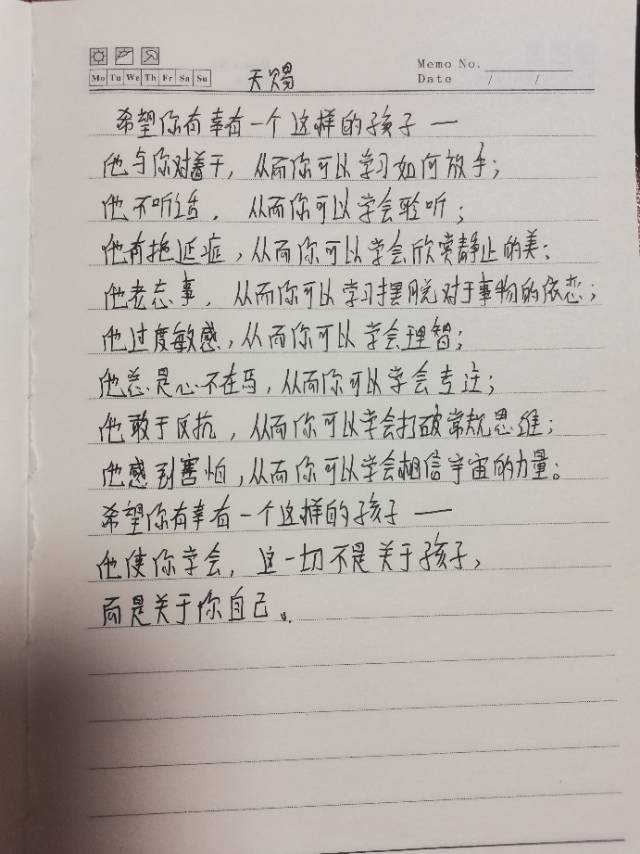 Mo Tu We Th Fr Sa Su
天赐
Memo No.
Date / /
希望你有幸有一个这样的孩子——
他与你对着干，从而你可以学习如何放手；
他不听话，从而你可以学会聆听；
他有拖延症，从而你可以学会欣赏静止的美；
他老忘事，从而你可以学习摆脱对于事物的依恋；
他过度敏感，从而你可以学会理智；
他总是心不在焉，从而你可以学会专注；
他敢于反抗，从而你可以学会打破常规思维；
他感到害怕，从而你可以学会相信宇宙的力量。
希望你有幸有一个这样的孩子——
他使你学会，这一切不是关于孩子，
而是关于你自己。